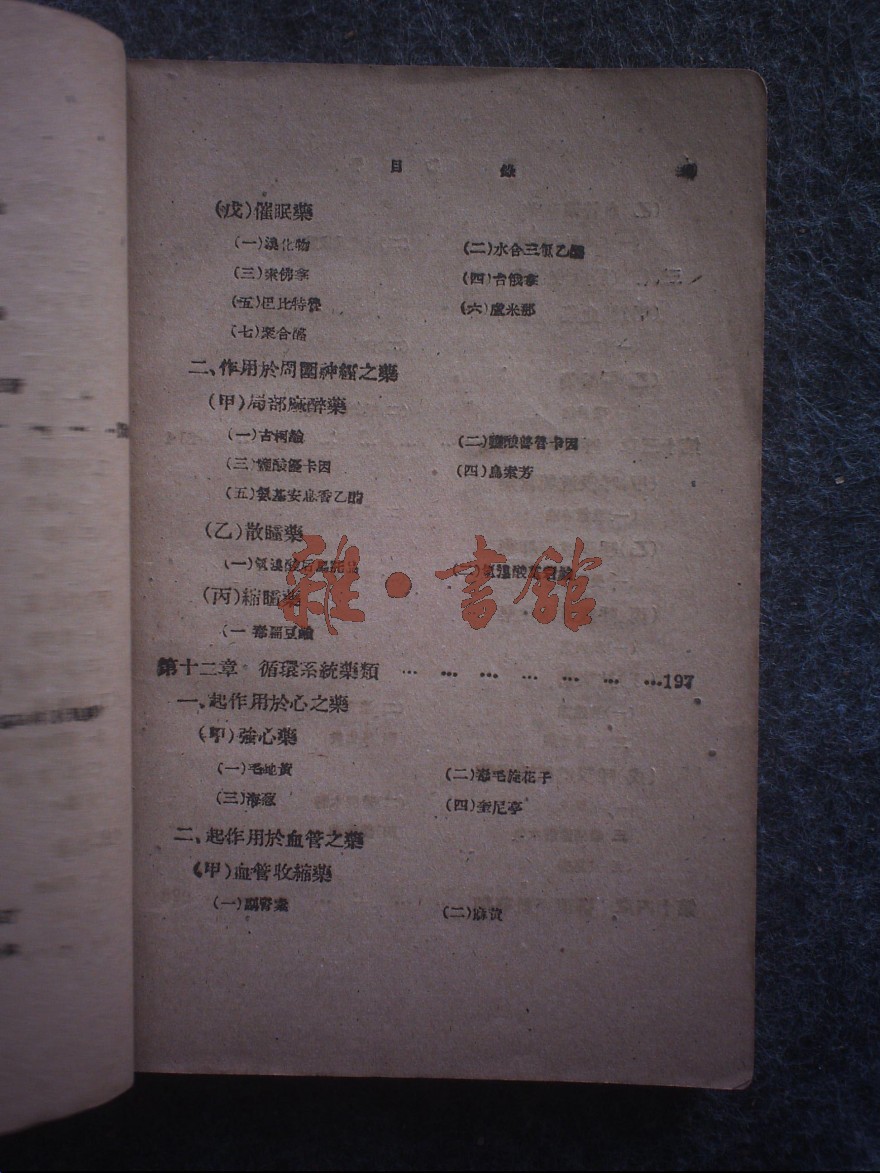 目 錄
(戊)催眠藥
(一)溴化物 (二)水合三氯乙醛
(三)索佛拿 (四)台俄拿
(五)巴比特魯 (六)盧米那
(七)聚合醛
二、作用於周圍神經之藥
(甲)局部麻醉藥
(一)古柯鹼 (二)鹽酸普魯卡因
(三)鹽酸優卡因 (四)烏索芳
(五)氨基安息香乙酯
(乙)散瞳藥
(一)氫溴酸 (二)氫溴酸
(丙)縮瞳藥
(一 毒扁豆鹼
雜·書館
第十二章 循環系統藥類 … … … … … … …197
一、起作用於心之藥
(甲)強心藥
(一)毛地黃 (二)毒毛旋花子
(三)海葱 (四)奎尼亭
二、起作用於血管之藥
(甲)血管收縮藥
(一)副腎素 (二)麻黃